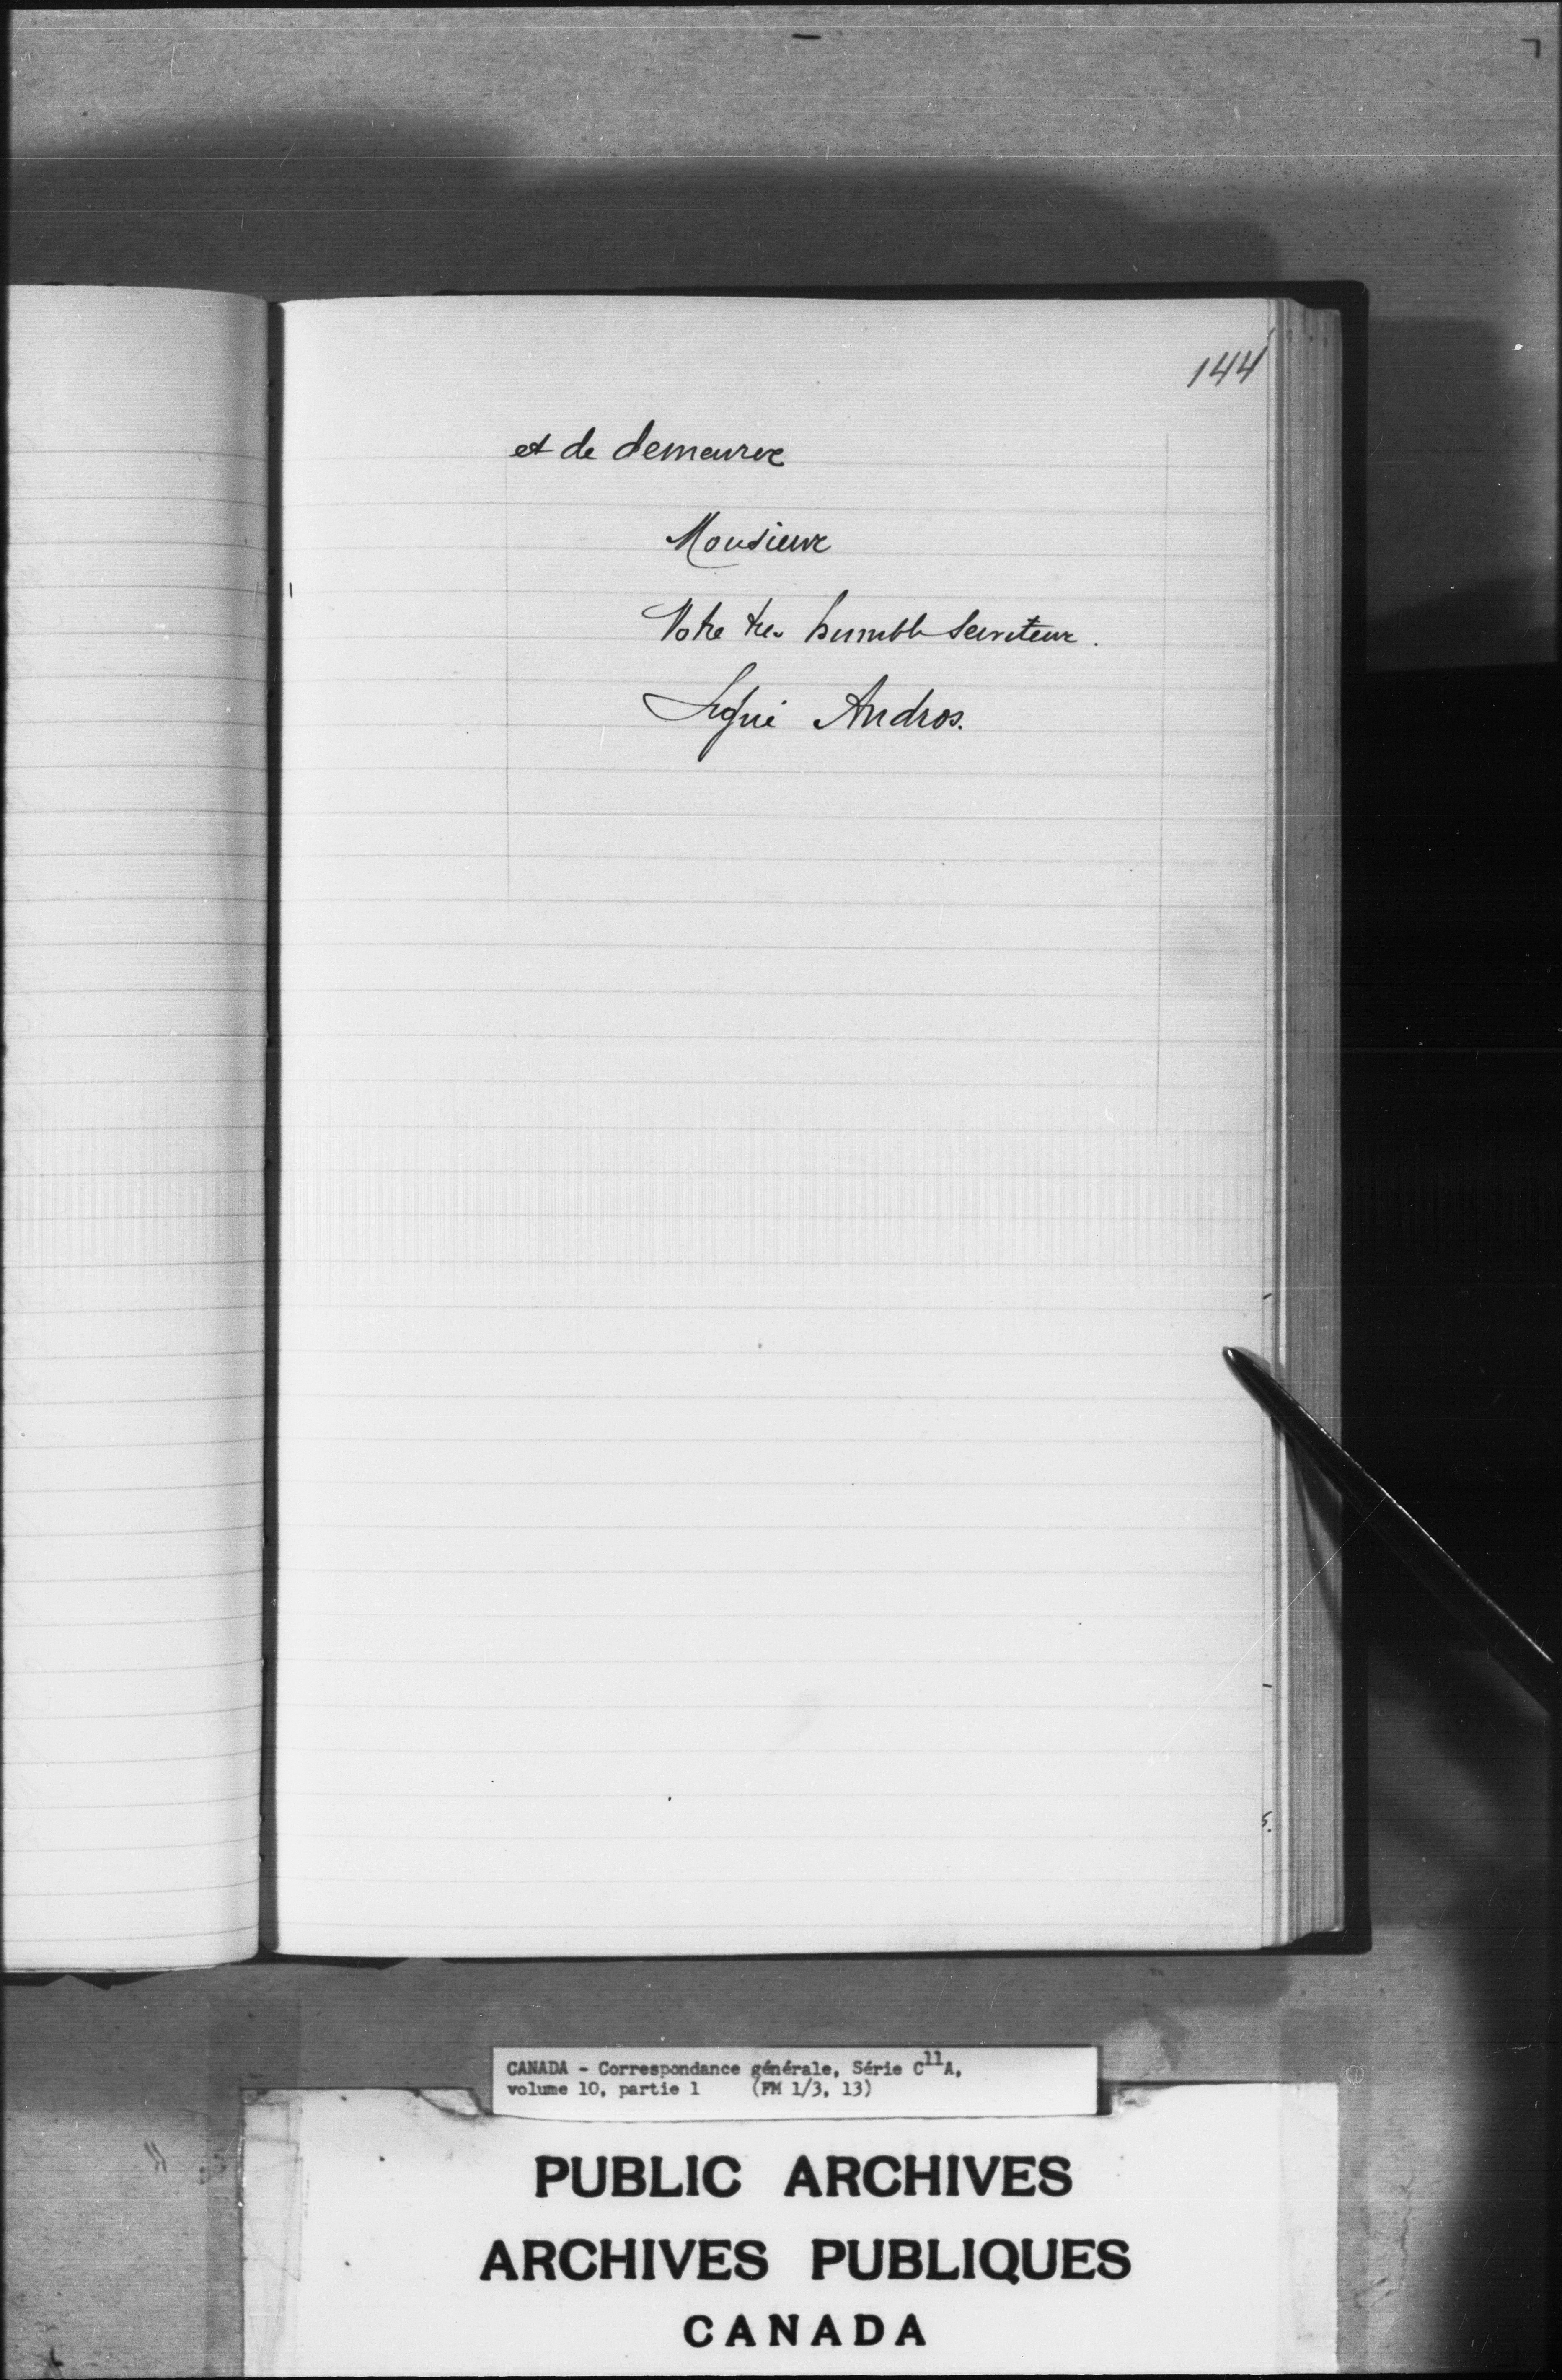 144
et de demeurer
Monsieur
Votre tres humble serviteur.
Signé Andros.
CANADA - Correspondance générale, Série C11A,
volume 10, partie 1 (FM 1/3, 13)
PUBLIC ARCHIVES
ARCHIVES PUBLIQUES
CANADA